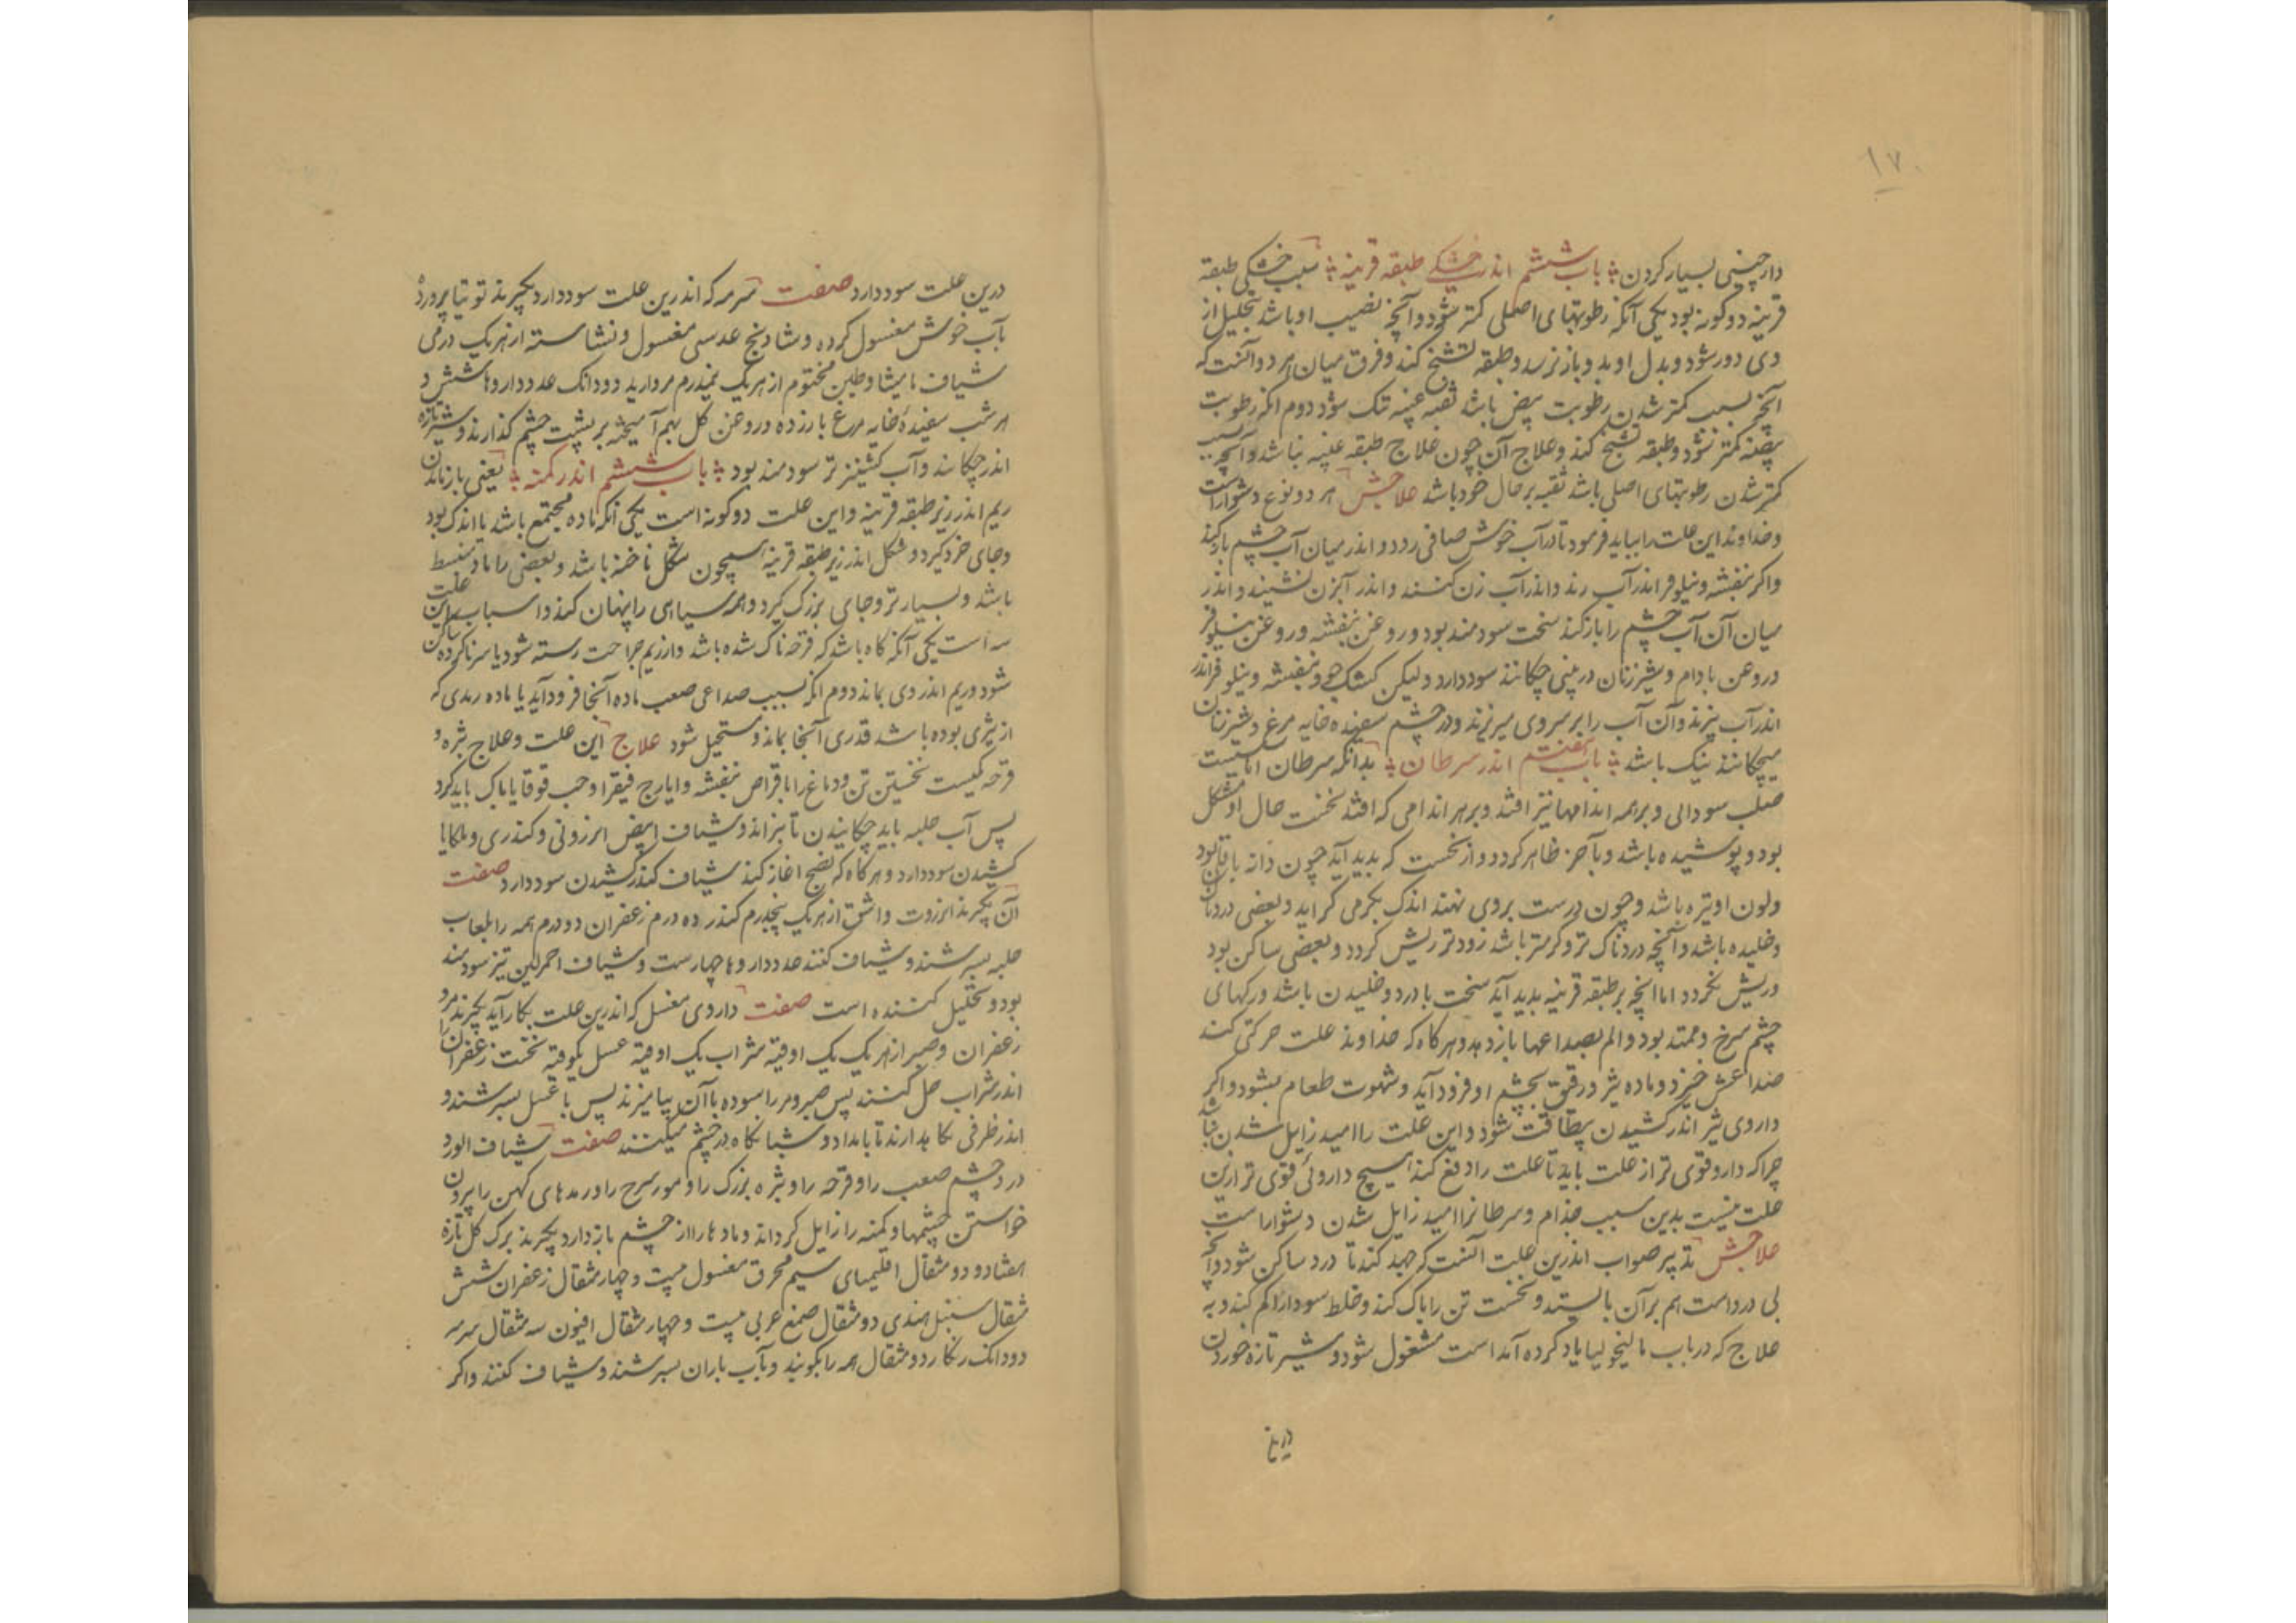 ۱۷۰
دارچینی بسیار کردن باب ششم اندر خشکی طبقه قرنیه سبب خشکی طبقه
قرنیه دو گونه بود یکی آنکه رطوبتهای اصلی کمتر شود و آنچه نصیب او باشد بتحلیل از
وی دور شود و بدل او بدو باز نرسد و طبقه تشنج کند و فرق میان هر دو آنست که
آنچه بسبب کمتر شدن رطوبت بیض باشد ثقبه عنبیه تنک شود دوم آنکه رطوبت
بیضه کمتر نشود و طبقه تشنج کند و علاج آن چون علاج طبقه عنبیه نباشد و آنچه بسبب
کمتر شدن رطوبتهای اصلی باشد ثقبه بر حال خود باشد علاجش هر دو نوع دشوار است
و خداوند این علت را بباید فرمود تا در آب خوش صافی رود و اندر میان آب چشم باز کند
واکر بنفشه و نیلوفر اندر آب زند و اندر آب زن کنند و اندر آبزن نشیند و اندر
میان آن آب چشم را باز کند سخت سودمند بود و روغن بنفشه و روغن نیلوفر
و روغن بادام و شیر زنان در بینی چکانند سود دارد و لیکن کشک جو و بنفشه و نیلوفر اندر
اندر آب پزند و آن آب را بر سر وی میریزند و در چشم سفیده خایه مرغ و شیر زنان
میچکانند نیک باشد باب هفتم اندر سرطان بدانکه سرطان اماسیست
صلب سودائی و بر همه اندامها نیز افتد و بر هر اندامی که افتد نخست حال او مشکل
بود و پوشیده باشد و بآخر ظاهر کردد و از نخست که بدید آید چون دانه باقلا بود
و لون او تیره باشد و چون درست بروی نهند اندک بکرمی کراید و بعضی دردناک
و خلیده باشد و آنچه دردناک تر و کرمتر باشد زودتر ریش کردد و بعضی ساکن بود
و ریش نکردد اما انچه بر طبقه قرنیه بدید آید سخت با درد و خلیدن باشد و رکهای
چشم سرخ و ممتد بود و الم بصداعها باز دهد و هرکاه که خداوند علت حرکتی کند
صداعش خیزد و ماده تیز و رقیق بچشم او فرود آید و شهوت طعام بشود و اکر
داروی تیز اندر کشیدن بیطاقت شود و این علت را امید زایل شدن نباشد
چرا که دارو قوی تر از علت باید تا علت را دفع کند هیچ داروئی قوی تر ازین
علت نیست بدین سبب جذام و سرطانرا امید زایل شدن دشوار است
علاجش تدبیر صواب اندرین علت آنست که جهد کند تا درد ساکن شود و آنچه
بی درد است هم بر آن بایستد و نخست تن را پاک کند و خلط سودا را کم کند و به
علاج که در باب مالیخولیا یاد کرده آمد است مشغول شود و شیر تازه خوردن
درین
درین علت سود دارد صفت سرمه که اندرین علت سود دارد بکیرند توتیا پرورده
بآب خوش مغسول کرده و شادنج عدسی مغسول و نشاسته از هر یک درمی
شیاف مامیثا و طین مختوم از هر یک نیمدرم مروارید دو دانک عدد داروها شش و
هر شب سفیده خایه مرغ با زرده و روغن کل بهم آمیخته بر پشت چشم کذارند و شیر تازه
اندر چکانند و آب کشنیز تر سودمند بود باب ششم اندر کمنه یعنی باز ماندن
ریم اندر زیر طبقه قرنیه و این علت دو کونه است یکی آنکه ماده مجتمع باشد یا اندک بود
و جای خرد کیرد و شکل اندر زیر طبقه قرنیه همچون شکل ناخنه باشد و بعضی را ماده منبسط
باشد و بسیارتر و جای بزرک کیرد و همه سیاهی را پنهان کند و اسباب این علت
سه است یکی آنکه کاه باشد که قرحه ناک شده باشد و از ریم جراحت رسته شود یا سر ناکرده ساکن
شود و ریم اندر وی بماند دوم آنکه بسبب صداعی صعب ماده آنجا فرود آید یا ماده رمدی که
از بثری بوده باشد قدری آنجا بماند و مستحیل شود علاج این علت و علاج بثره و
قرحه یکیست نخستین تن و دماغ را باقراص بنفشه و ایارج فیقرا و حب قوقایا پاک باید کرد
پس آب حلبه باید چکانیدن تا بپزاند و شیاف ابیض انزروتی و کندری و ملکایا
کشیدن سود دارد و هرکاه که نضج اغاز کند شیاف کندر کشیدن سود دارد صفت
آن بکیرند انزروت و اشق از هر یک پنجدرم کندر ده درم زعفران دو درم همه را بلعاب
حلبه بسرشند و شیاف کنند عدد داروها چهارست و شیاف احمر لین نیز سودمند
بود و تحلیل کننده است صفت داروی مغسل که اندرین علت بکار آید بکیرند مر و
زعفران و صبر از هر یک یک اوقیه شراب یک اوقیه عسل یکوقیه نخست زعفران را
اندر شراب حل کنند پس صبر و مر را سوده با آن بیامیزند پس با عسل بسرشند و
اندر ظرفی نکاهدارند تا بامداد و شبانکاه در چشم میکنند صفت شیاف الورد
درد چشم صعب را و قرحه را و بثره بزرک را و مورسرح را و رمدهای کهن را و بیرون
خواستن چشمها و کمنه را زایل کرداند و مادها را از چشم باز دارد بکیرند برک کل تازه
هفتاد و دو مثقال اقلیمیای سیم محرق مغسول بیست و چهار مثقال زعفران شش
مثقال سنبل هندی دو مثقال صمغ عربی بیست و چهار مثقال افیون سه مثقال سرمه
دو دانک زنکار دو مثقال همه را بکوبند و بآب باران بسرشند و شیاف کنند واکر